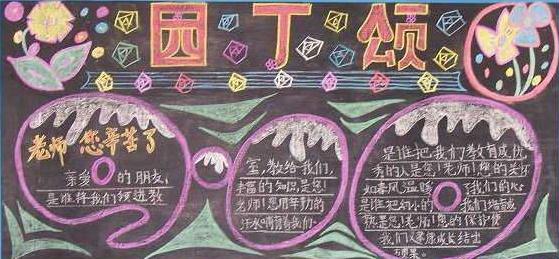 园丁颂
老师 您辛苦了
亲爱的朋友,
是谁将我们领进教
室,教给我们,
丰富的知识,是您!
老师!您用辛勤的
汗水哺育着我们。
是谁把我们教育成优
秀的人是您!老师!您的关怀
如春风,温暖了我们的心
是谁把幼小的我们培育成
熟是您!老师!您的保护使
我们
成长结出
硕果。